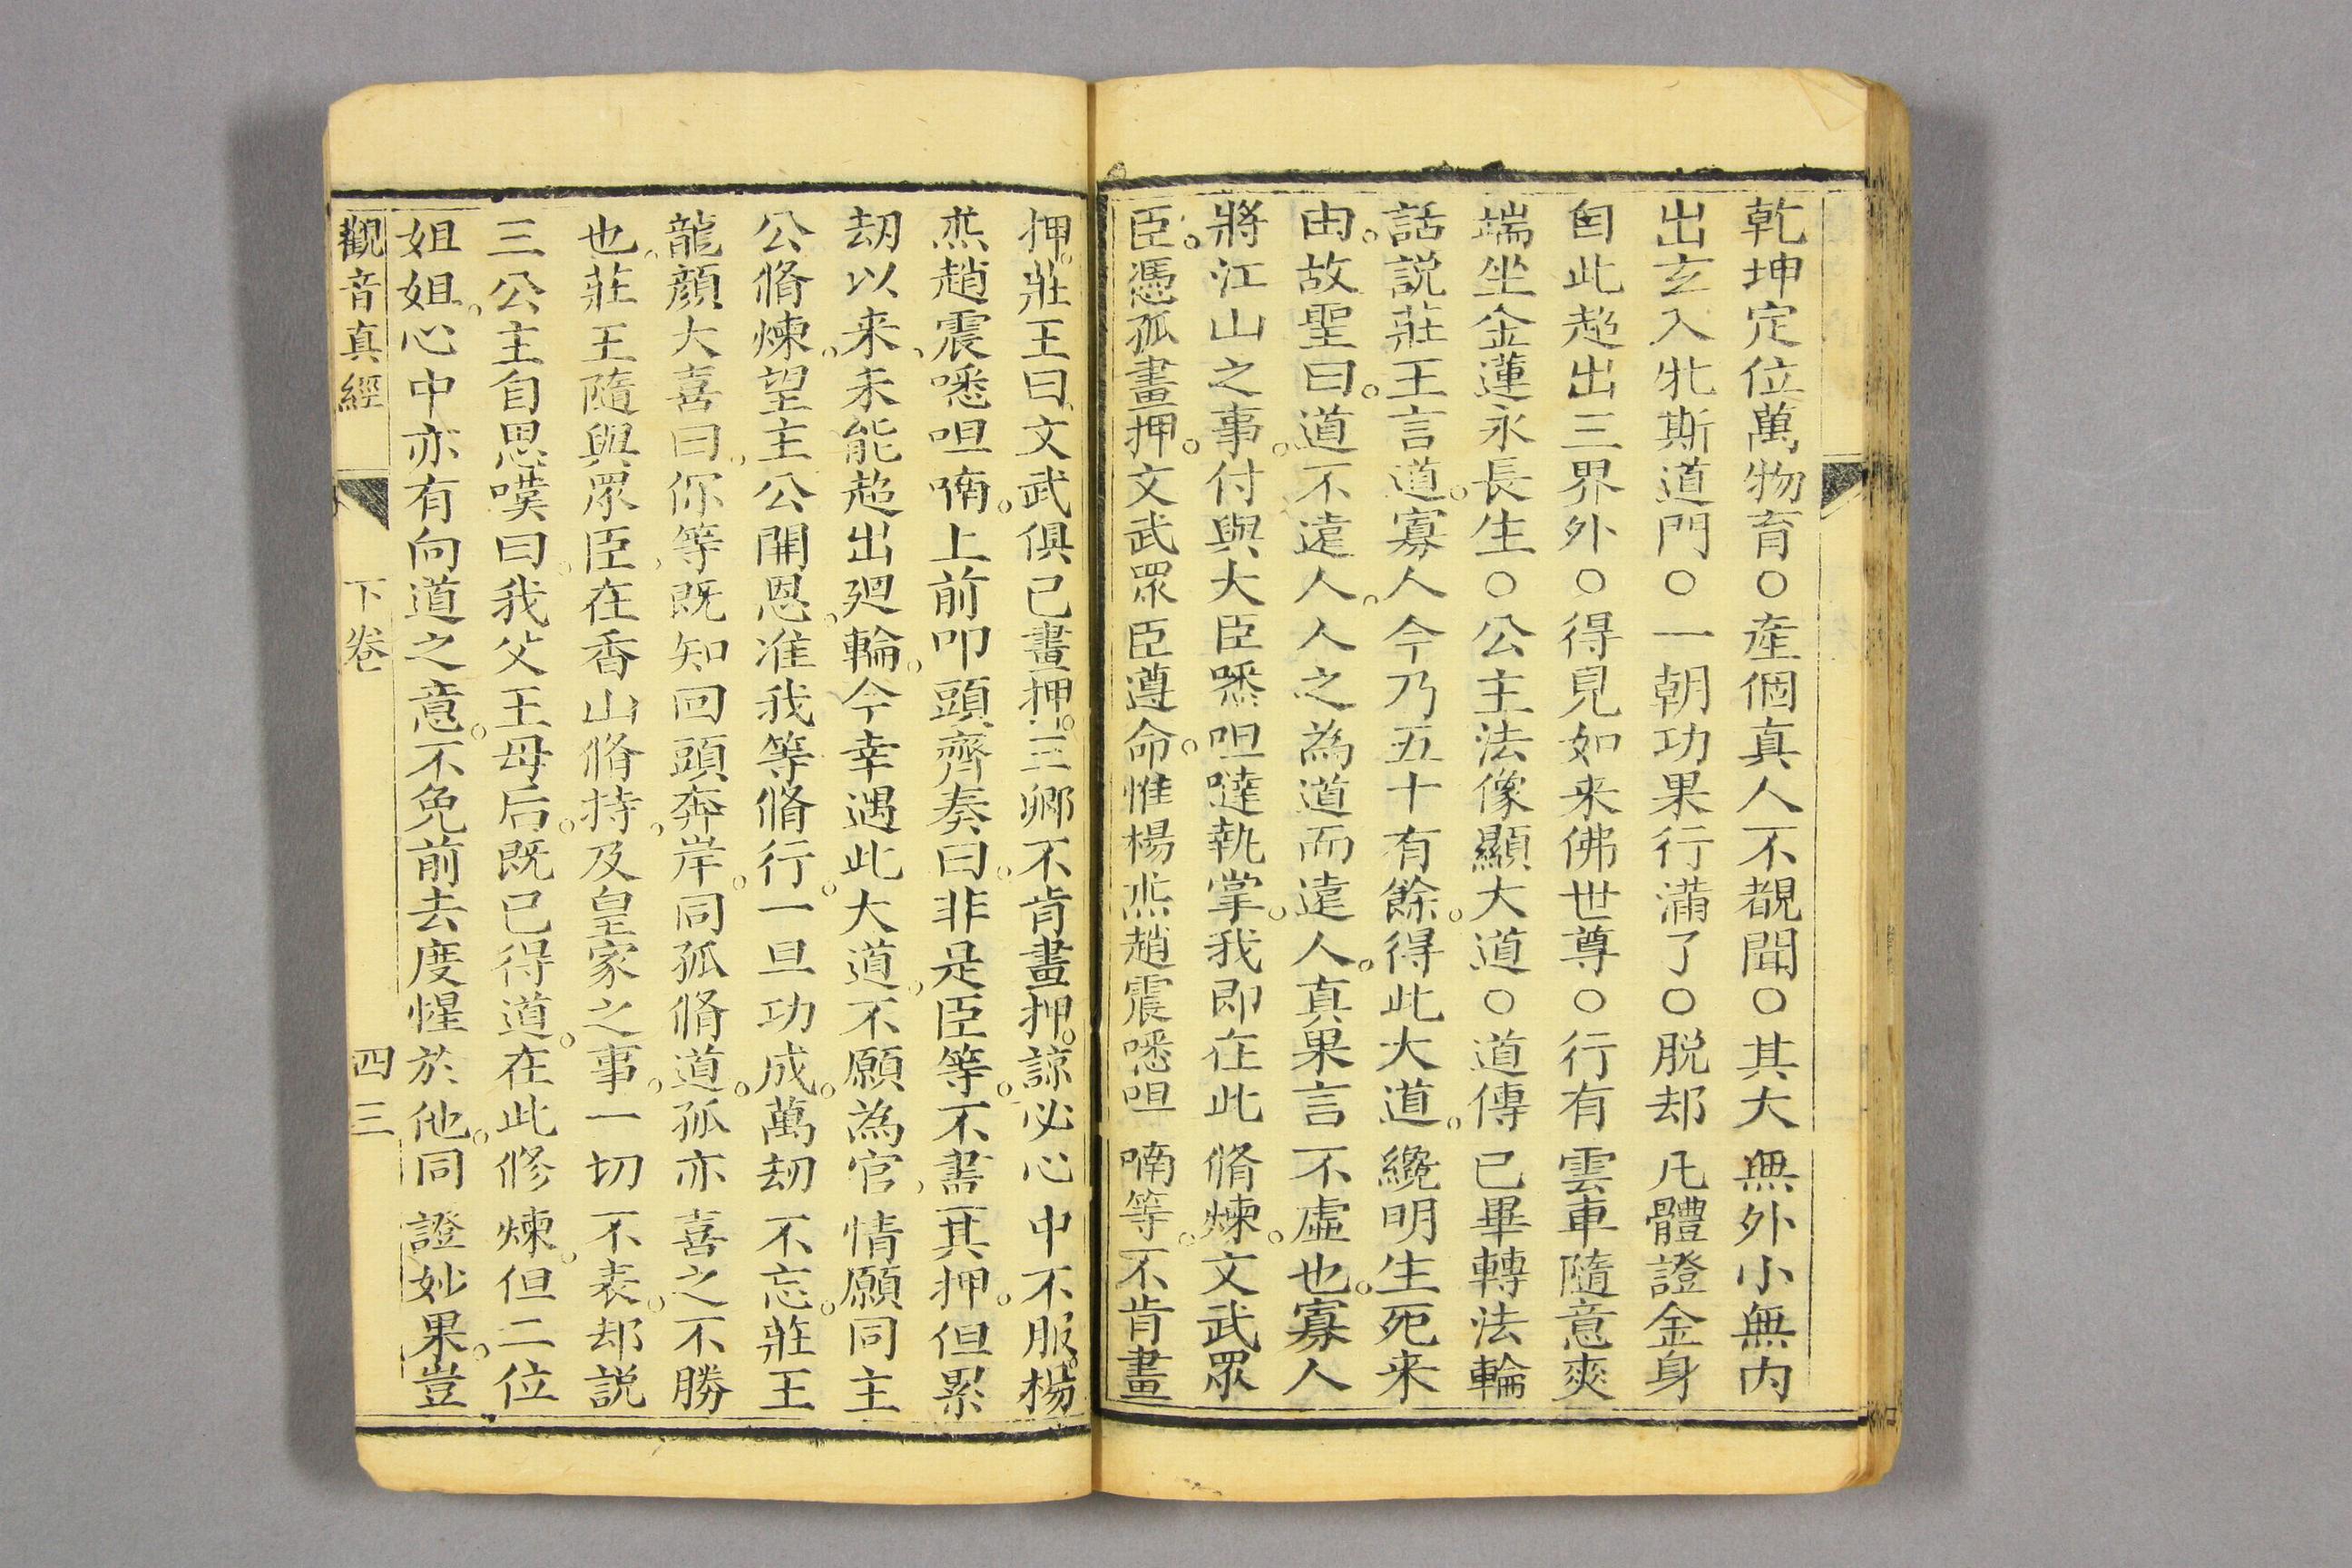 乾坤定位萬物育○產個真人不覩聞○其大無外小無内
出玄入牝斯道門○一朝功果行滿了○脱却凡體證金身
自此超出三界外○得見如来佛世尊○行有雲車隨意爽
端坐金蓮永長生○公主法像顯大道○道傳已畢轉法輪
話説莊王言道。寡人今乃五十有餘。得此大道。纔明生死来
由。故聖曰。道不遠人。人之為道而遠人。真果言不虛也。寡人
將江山之事。付與大臣㗭呾噠執掌。我即在此脩煉。文武眾
臣。憑孤畫押。文武眾臣遵命。惟楊烝趙震㗭呾喃等。不肯畫
押。莊王曰、文武俱已畫押。三卿不肯畫押。諒必心中不服。楊
烝趙震㗭呾喃。上前叩頭齊奏曰。非是臣等。不畵其押。但累
刼以来、未能超出廻輪。今幸遇此大道、不願為官、情願同主
公脩煉。望主公開恩。准我等脩行。一旦功成。萬刼不忘。莊王
龍顔大喜曰、你等既知回頭奔岸。同孤脩道。孤亦喜之不勝
也、莊王隨與眾臣、在香山脩持、及皇家之事。一切不表。却説
三公主自思嘆曰。我父王母后。既已得道。在此修煉。但二位
姐姐。心中亦有向道之意。不免前去度惺於他。同證妙果。豈
觀音真經 下卷 四三